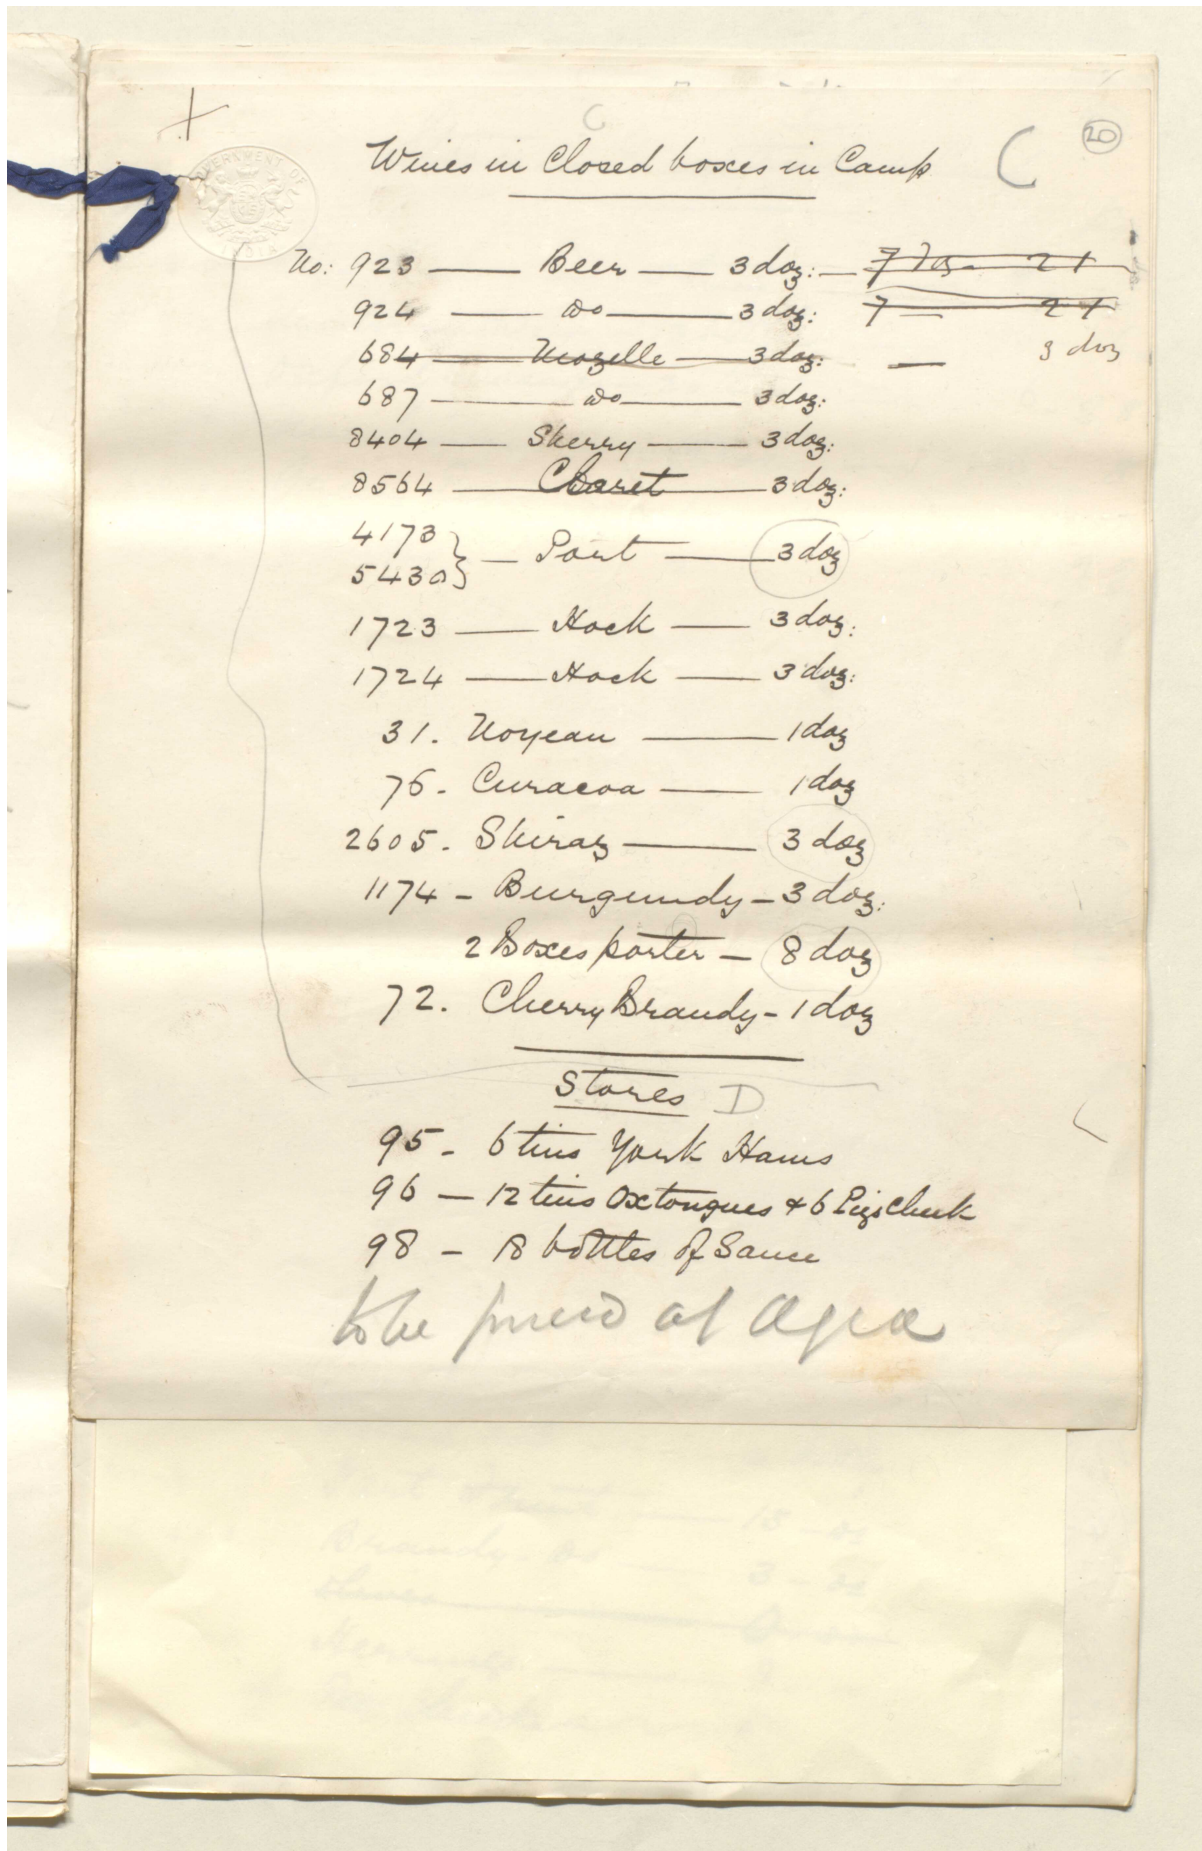 C
20
Wines in Closed boxes in Camp C
GOVERNMENT OF INDIA
No: 923 — Beer — 3 doz: — 7 doz — 21
924 — do — 3 doz: 7 — 21
684 — Mozelle — 3 doz: — 3 doz
687 — do — 3 doz:
8404 — Sherry — 3 doz:
8564 — Claret — 3 doz:
4173
5430 } — Port — 3 doz
1723 — Hock — 3 doz:
1724 — Hock — 3 doz:
31. Noyeau — 1 doz
76. Curacoa — 1 doz
2605. Shiraz — 3 doz
1174 - Burgundy - 3 doz:
2 Boxes porter - 8 doz
72. Cherry Brandy - 1 doz
Stores D
95 - 6 tins York Hams
96 - 12 tins Oxtongues & 6 Pigs Cheek
98 - 18 bottles of Sauce
to be at